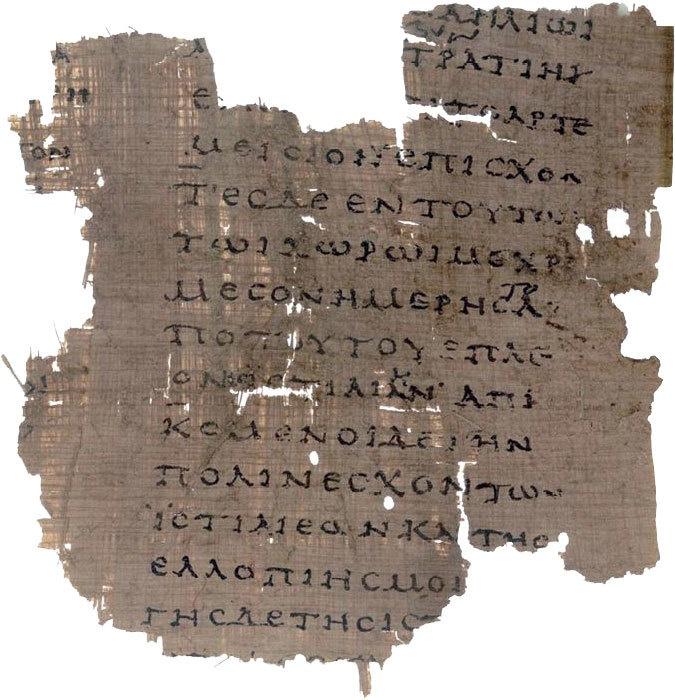 ΑΜΑΗΛΙΩΙ
ΤΡΑΤΙΗΙ
Ε ΤΟΑΡΤΕ
ΜΕΙϹΙΟΝ ΕΠΙϹΧΟΝ
ΤΕϹΔΕΕΝΤΟΥΤΩΙ
ΤΩΙΧΩΡΩΙΜΕΧΡΙ
ΜΕϹΟΝΗΜΕΡΗϹΑ
ΠΟΤΟΥΤΟΥΕΠΛΕ
ΟΝΕϹ ΤΙΑΙΑΝ ΑΠΙ
ΚΟΜΕΝΟΙΔΕΤΗΝ
ΠΟΛΙΝΕϹΧΟΝΤΩΝ
ΙϹΤΙΑΙΕΩΝΚΑ ΤΗϹ
ΕΛΛΟΠΙΗϹΜΟΙ
ΓΗϹΔΕΤΗϹΙϹ